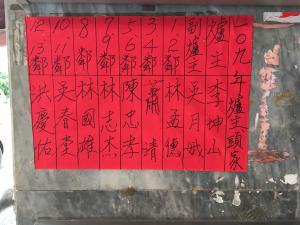 一〇九年爐主頭家
爐主 李坤山
副爐主 吳月娥
1.2鄰 林孟德
3.4鄰 蕭清
5.6鄰 陳忠孝
7.9鄰 林志杰
8鄰 林國雄
10.11鄰 吳春堂
12.13鄰 洪慶佑